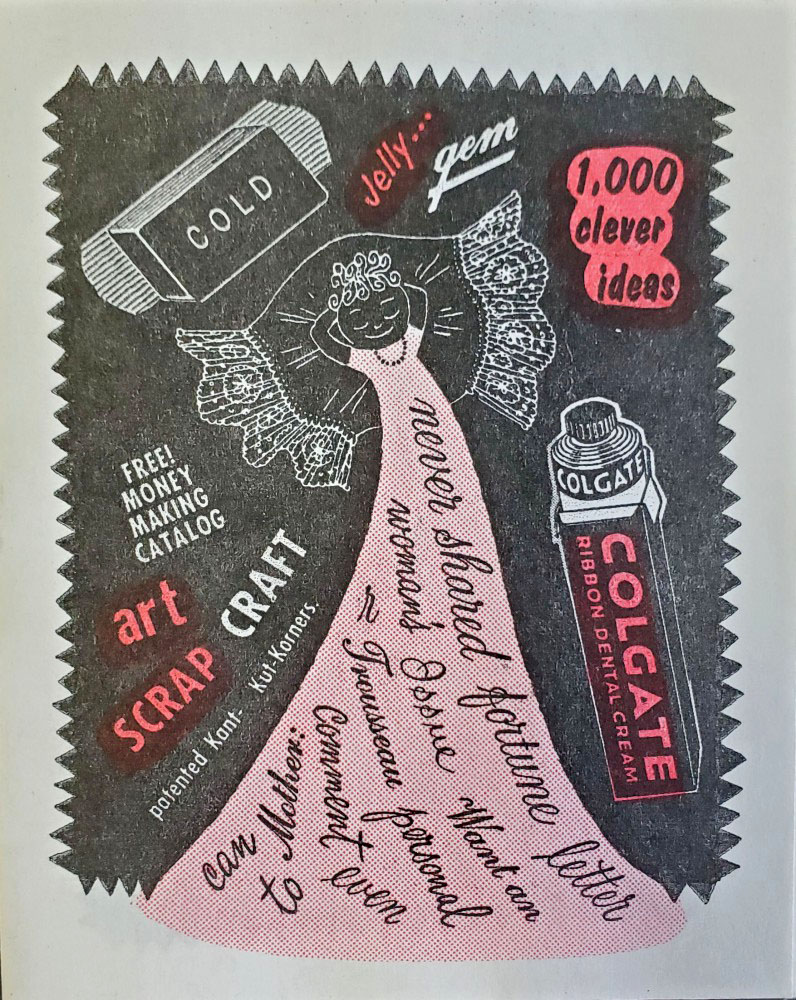 COLD
Jelly...
gem
1,000
clever
ideas
COLGATE
COLGATE
RIBBON DENTAL CREAM
FREE!
MONEY
MAKING
CATALOG
art
CRAFT
SCRAP
patented Kant- Kut-Korners
never shared fortune letter
woman's Issue Want an
≈ Trousseau personal
Comment even
can
to Mother: